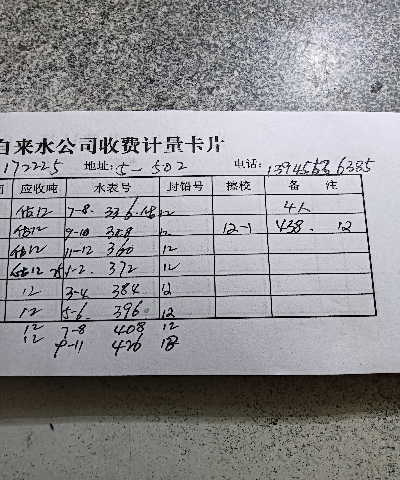 自来水公司收费计量卡片
172225 地址: 5-502 电话:
应收吨 水表号 封铅号 换校 备 注
估12 7-8. 336. 12 4人
估12 9-10 348 12 12-1 438. 12
估12 11-12 360 12
估12 1-2. 372 12
12 3-4 384 12
12 5-6. 396. 12
12 7-8 408 12
12 9-11 420